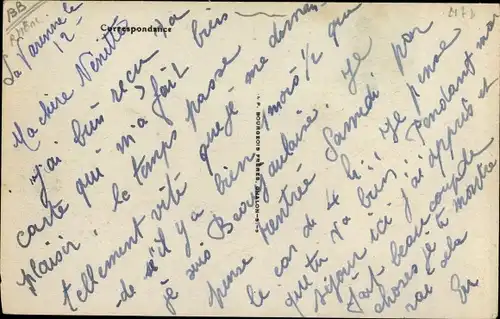 BB
Rhône
2178
Correspondance
La Varenne le
12 -
Ma chère Nénette
J'ai bien reçu ta
carte qui m'a fait bien
plaisir, le temps passe
tellement vite que je me deman-
de s'il y a bien 1 mois ½ que
je suis Beaujolaise. Je
pense rentrée Samedi par
le car de 4 h. Je pense
que tu va bien, pendant mon
séjour ici j'ai appris et
fait beaucoup de
choses je te montre
rai cela
En
I. P. BOURGEOIS FRÈRES, CHALON-S-S